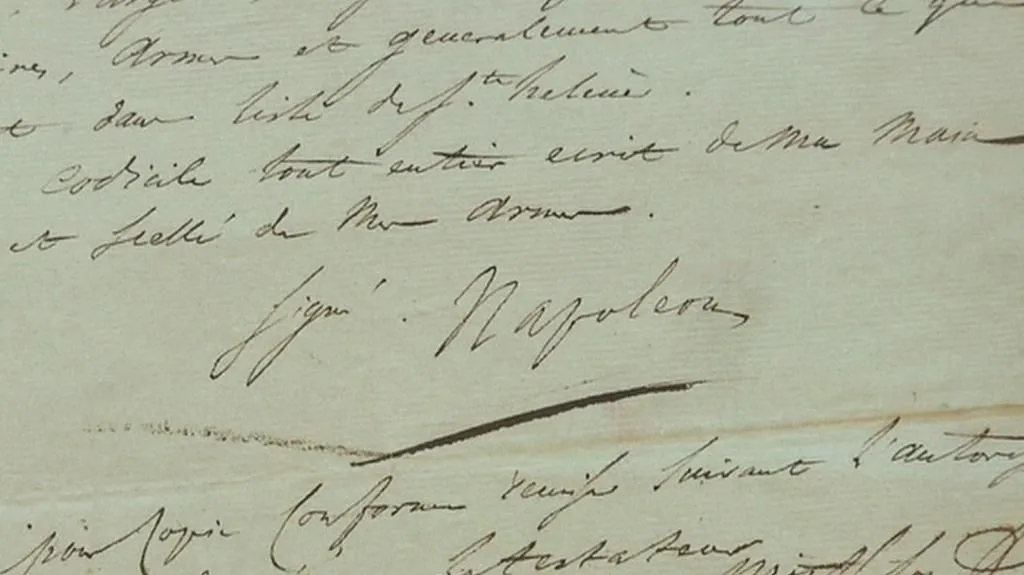 armes et generalement tout ce que
dans l'isle de Ste helene.
codicile tout entier ecrit de ma main
et scellé de mes armes.
signé. Napoleon
pour Copie Conforme remise suivant l'autori
testateur